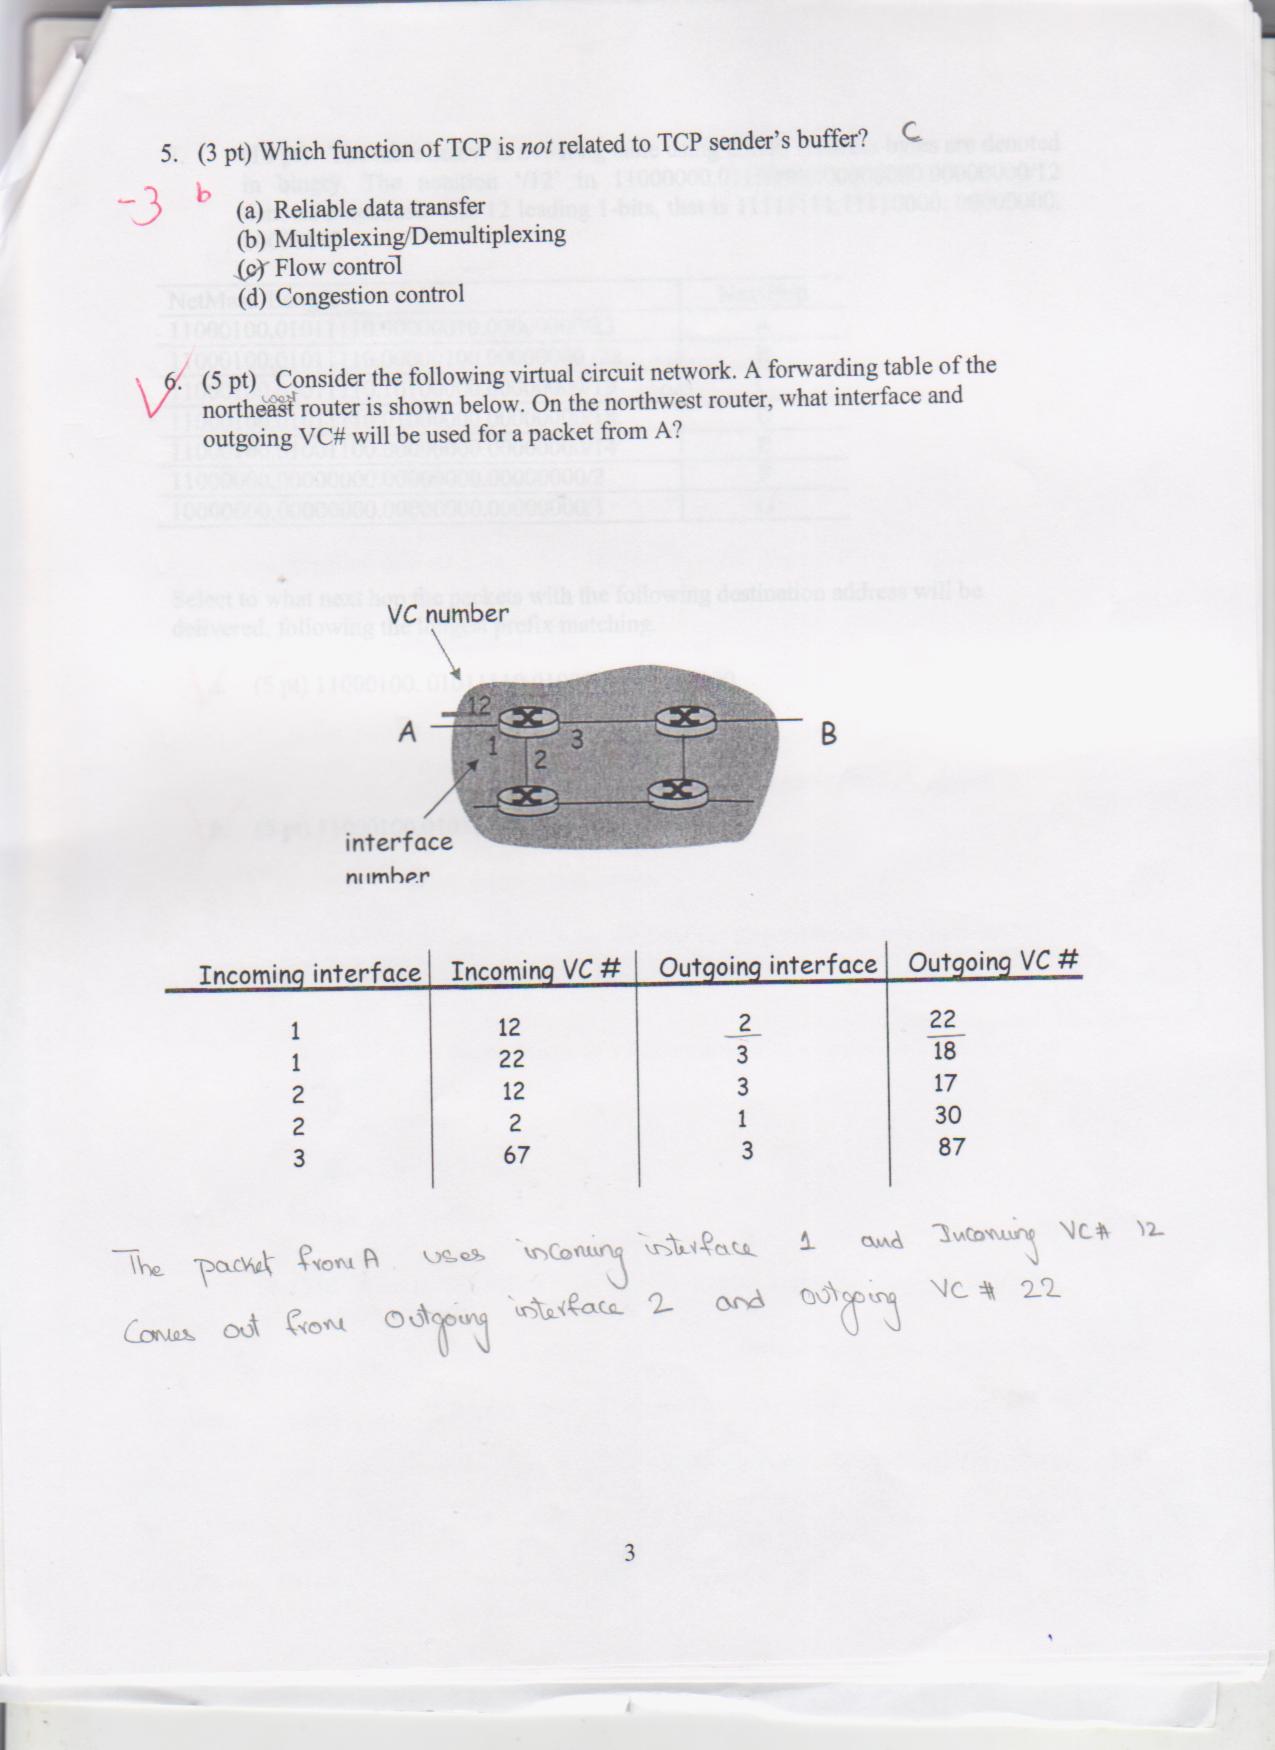 5. (3 pt) Which function of TCP is not related to TCP sender's buffer? C
-3 b
(a) Reliable data transfer
(b) Multiplexing/Demultiplexing
(c) Flow control
(d) Congestion control
6. (5 pt) Consider the following virtual circuit network. A forwarding table of the
west
northeast router is shown below. On the northwest router, what interface and
outgoing VC# will be used for a packet from A?
VC number
12
A
1
3
2
B
interface
number
Incoming interface Incoming VC # Outgoing interface Outgoing VC #
1 12 2 22
1 22 3 18
2 12 3 17
2 2 1 30
3 67 3 87
The packet from A uses incoming interface 1 and Incoming VC# 12
Comes out from Outgoing interface 2 and outgoing VC # 22
3